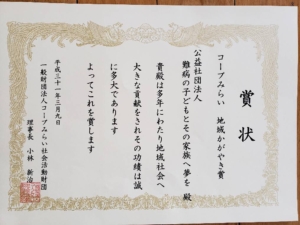 賞状
コープみらい 地域かがやき賞
公益社団法人
難病の子どもとその家族へ夢を 殿
貴殿は多年にわたり地域社会へ
大きな貢献をされその功績は誠
に多大であります
よってこれを賞します
平成三十一年三月九日
一般財団法人コープみらい社会活動財団
理事長 小林 新治